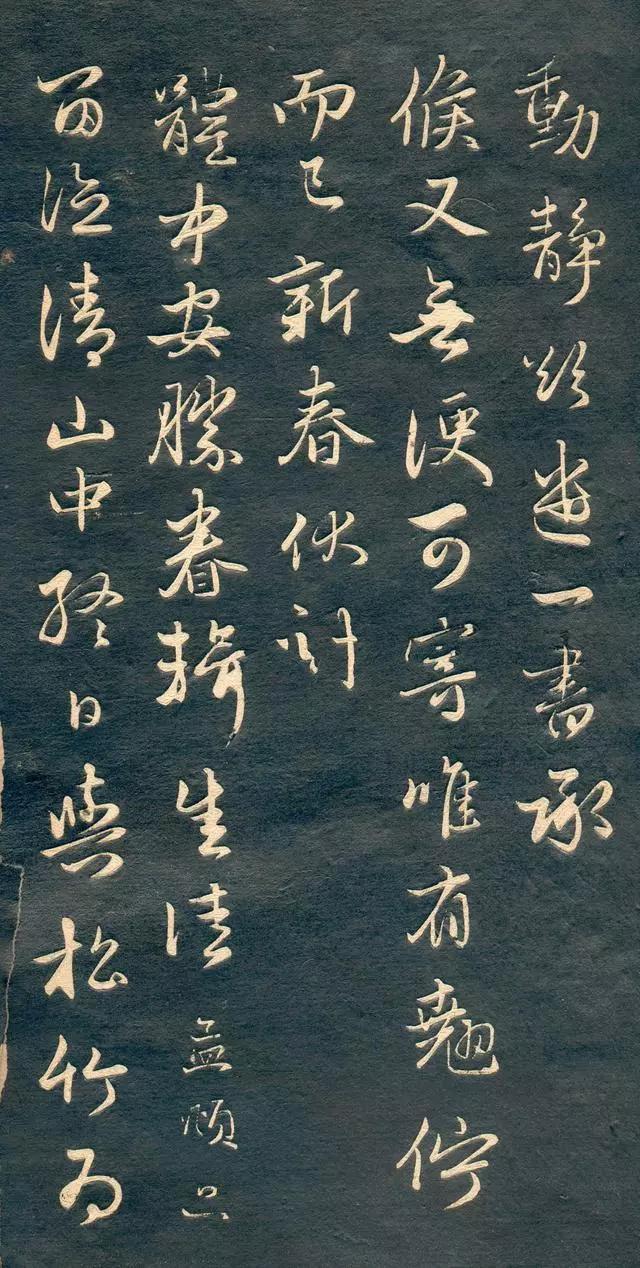 動靜欲遣一書承
候又無便可寄唯有翹佇
而已新春伏計
體中安勝眷輯生佳孟頫只
留德清山中終日與松竹為